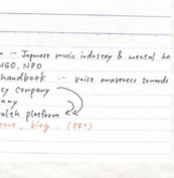 - Japanese music industry & mental he
NGO, NPO
handbook - raise awareness towards
cy company
any
alth platform
team, blog, (PR+)